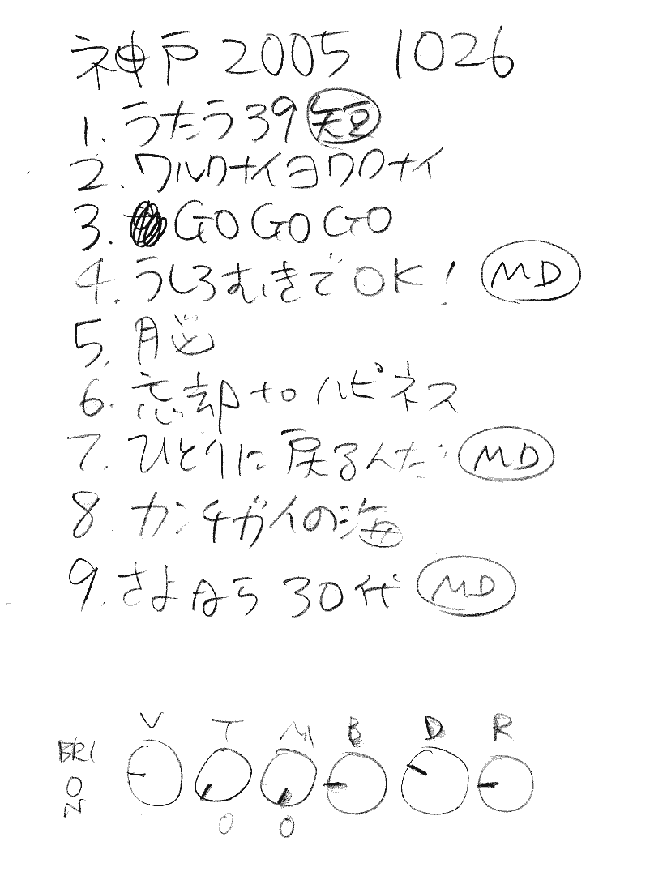 神戸 2005 1026
1. うたう39 短
2. ワルクナイヨワクナイ
3. GO GO GO
4. うしろむきでOK! MD
5. 月に
6. 忘却 to ハピネス
7. ひとりに戻るんだ MD
8. カンチガイの海
9. さよなら 30代 MD
V T M B D R
BRI
O
N
0 0